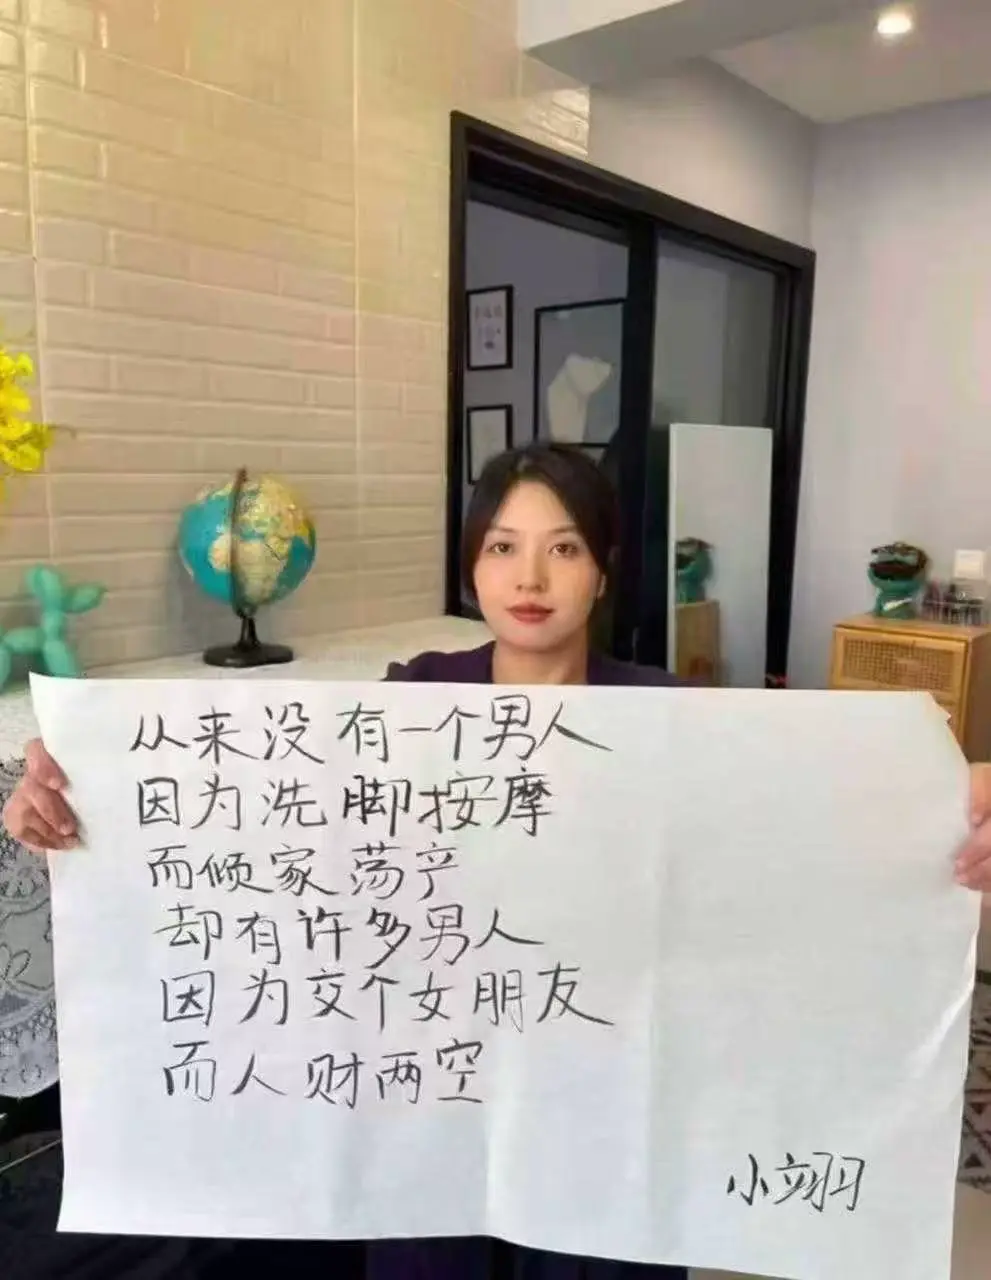 从来没有一个男人
因为洗脚按摩
而倾家荡产
却有许多男人
因为交个女朋友
而人财两空
小翊